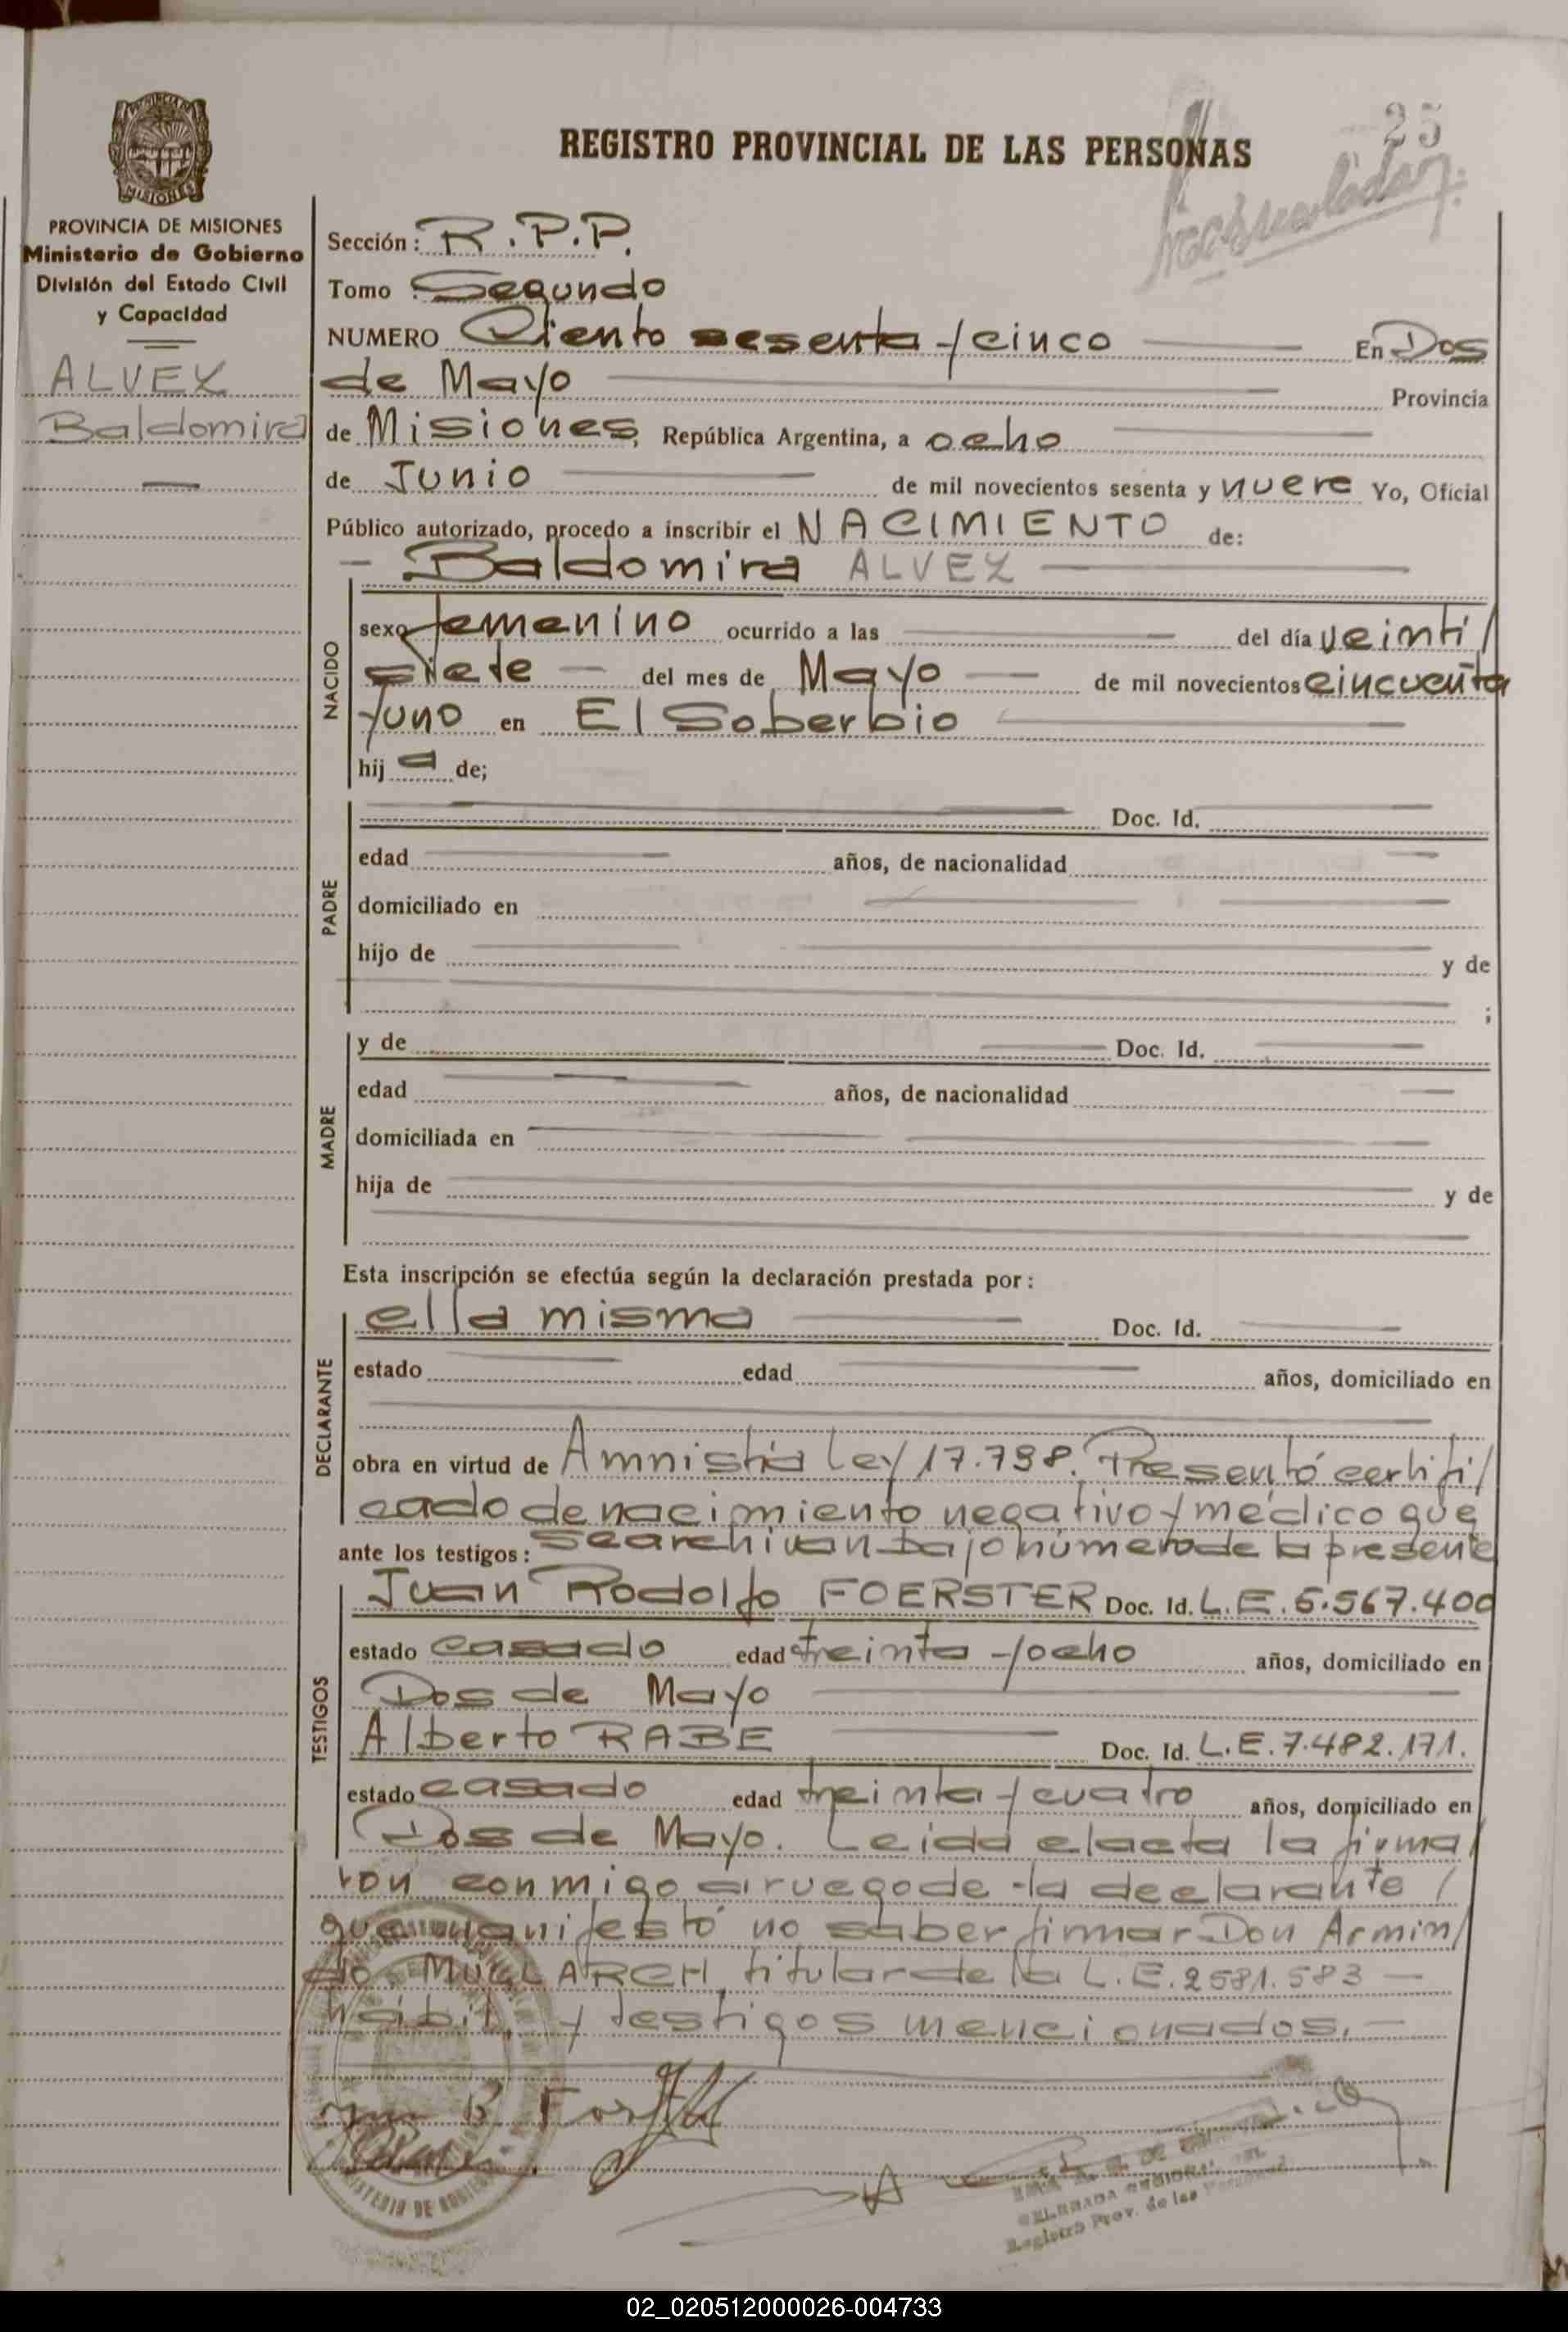 25
REGISTRO PROVINCIAL DE LAS PERSONAS
PROVINCIA DE MISIONES
Ministerio de Gobierno
División del Estado Civil
y Capacidad
ALVEZ
Baldomira
Sección: R.P.P.
Tomo: Segundo
NUMERO Ciento sesenta y cinco En Dos
de Mayo Provincia
de Misiones, República Argentina, a ocho
de Junio de mil novecientos sesenta y nueve Yo, Oficial
Público autorizado, procedo a inscribir el NACIMIENTO de:
Baldomira ALVEZ
NACIDO
sexo femenino ocurrido a las del día veinti/
siete del mes de Mayo de mil novecientos cincuenta
y uno en El Soberbio
hij a de;
PADRE
Doc. Id.
edad años, de nacionalidad
domiciliado en
hijo de y de
;
MADRE
y de Doc. Id.
edad años, de nacionalidad
domiciliada en
hija de y de
Esta inscripción se efectúa según la declaración prestada por:
DECLARANTE
ella misma Doc. Id.
estado edad años, domiciliado en
obra en virtud de Amnistía Ley 17.798. Presentó certifi/
cado de nacimiento negativo y médico que
ante los testigos: se archivan bajo número de la presente
TESTIGOS
Juan Rodolfo FOERSTER Doc. Id. L.E. 6.567.400
estado casado edad treinta y ocho años, domiciliado en
Dos de Mayo
Alberto RABE Doc. Id. L.E. 7.482.171.
estado casado edad treinta y cuatro años, domiciliado en
Dos de Mayo. Leida el acta la firma/
ron conmigo, a ruego de la declarante /
que manifestó no saber firmar Don Armin/
do MUGLARCH, titular de la L.E. 2581.583 —
hábil, y testigos mencionados. —
DELEGADA REGIONAL
Registro Prov. de las Personas
02_020512000026-004733